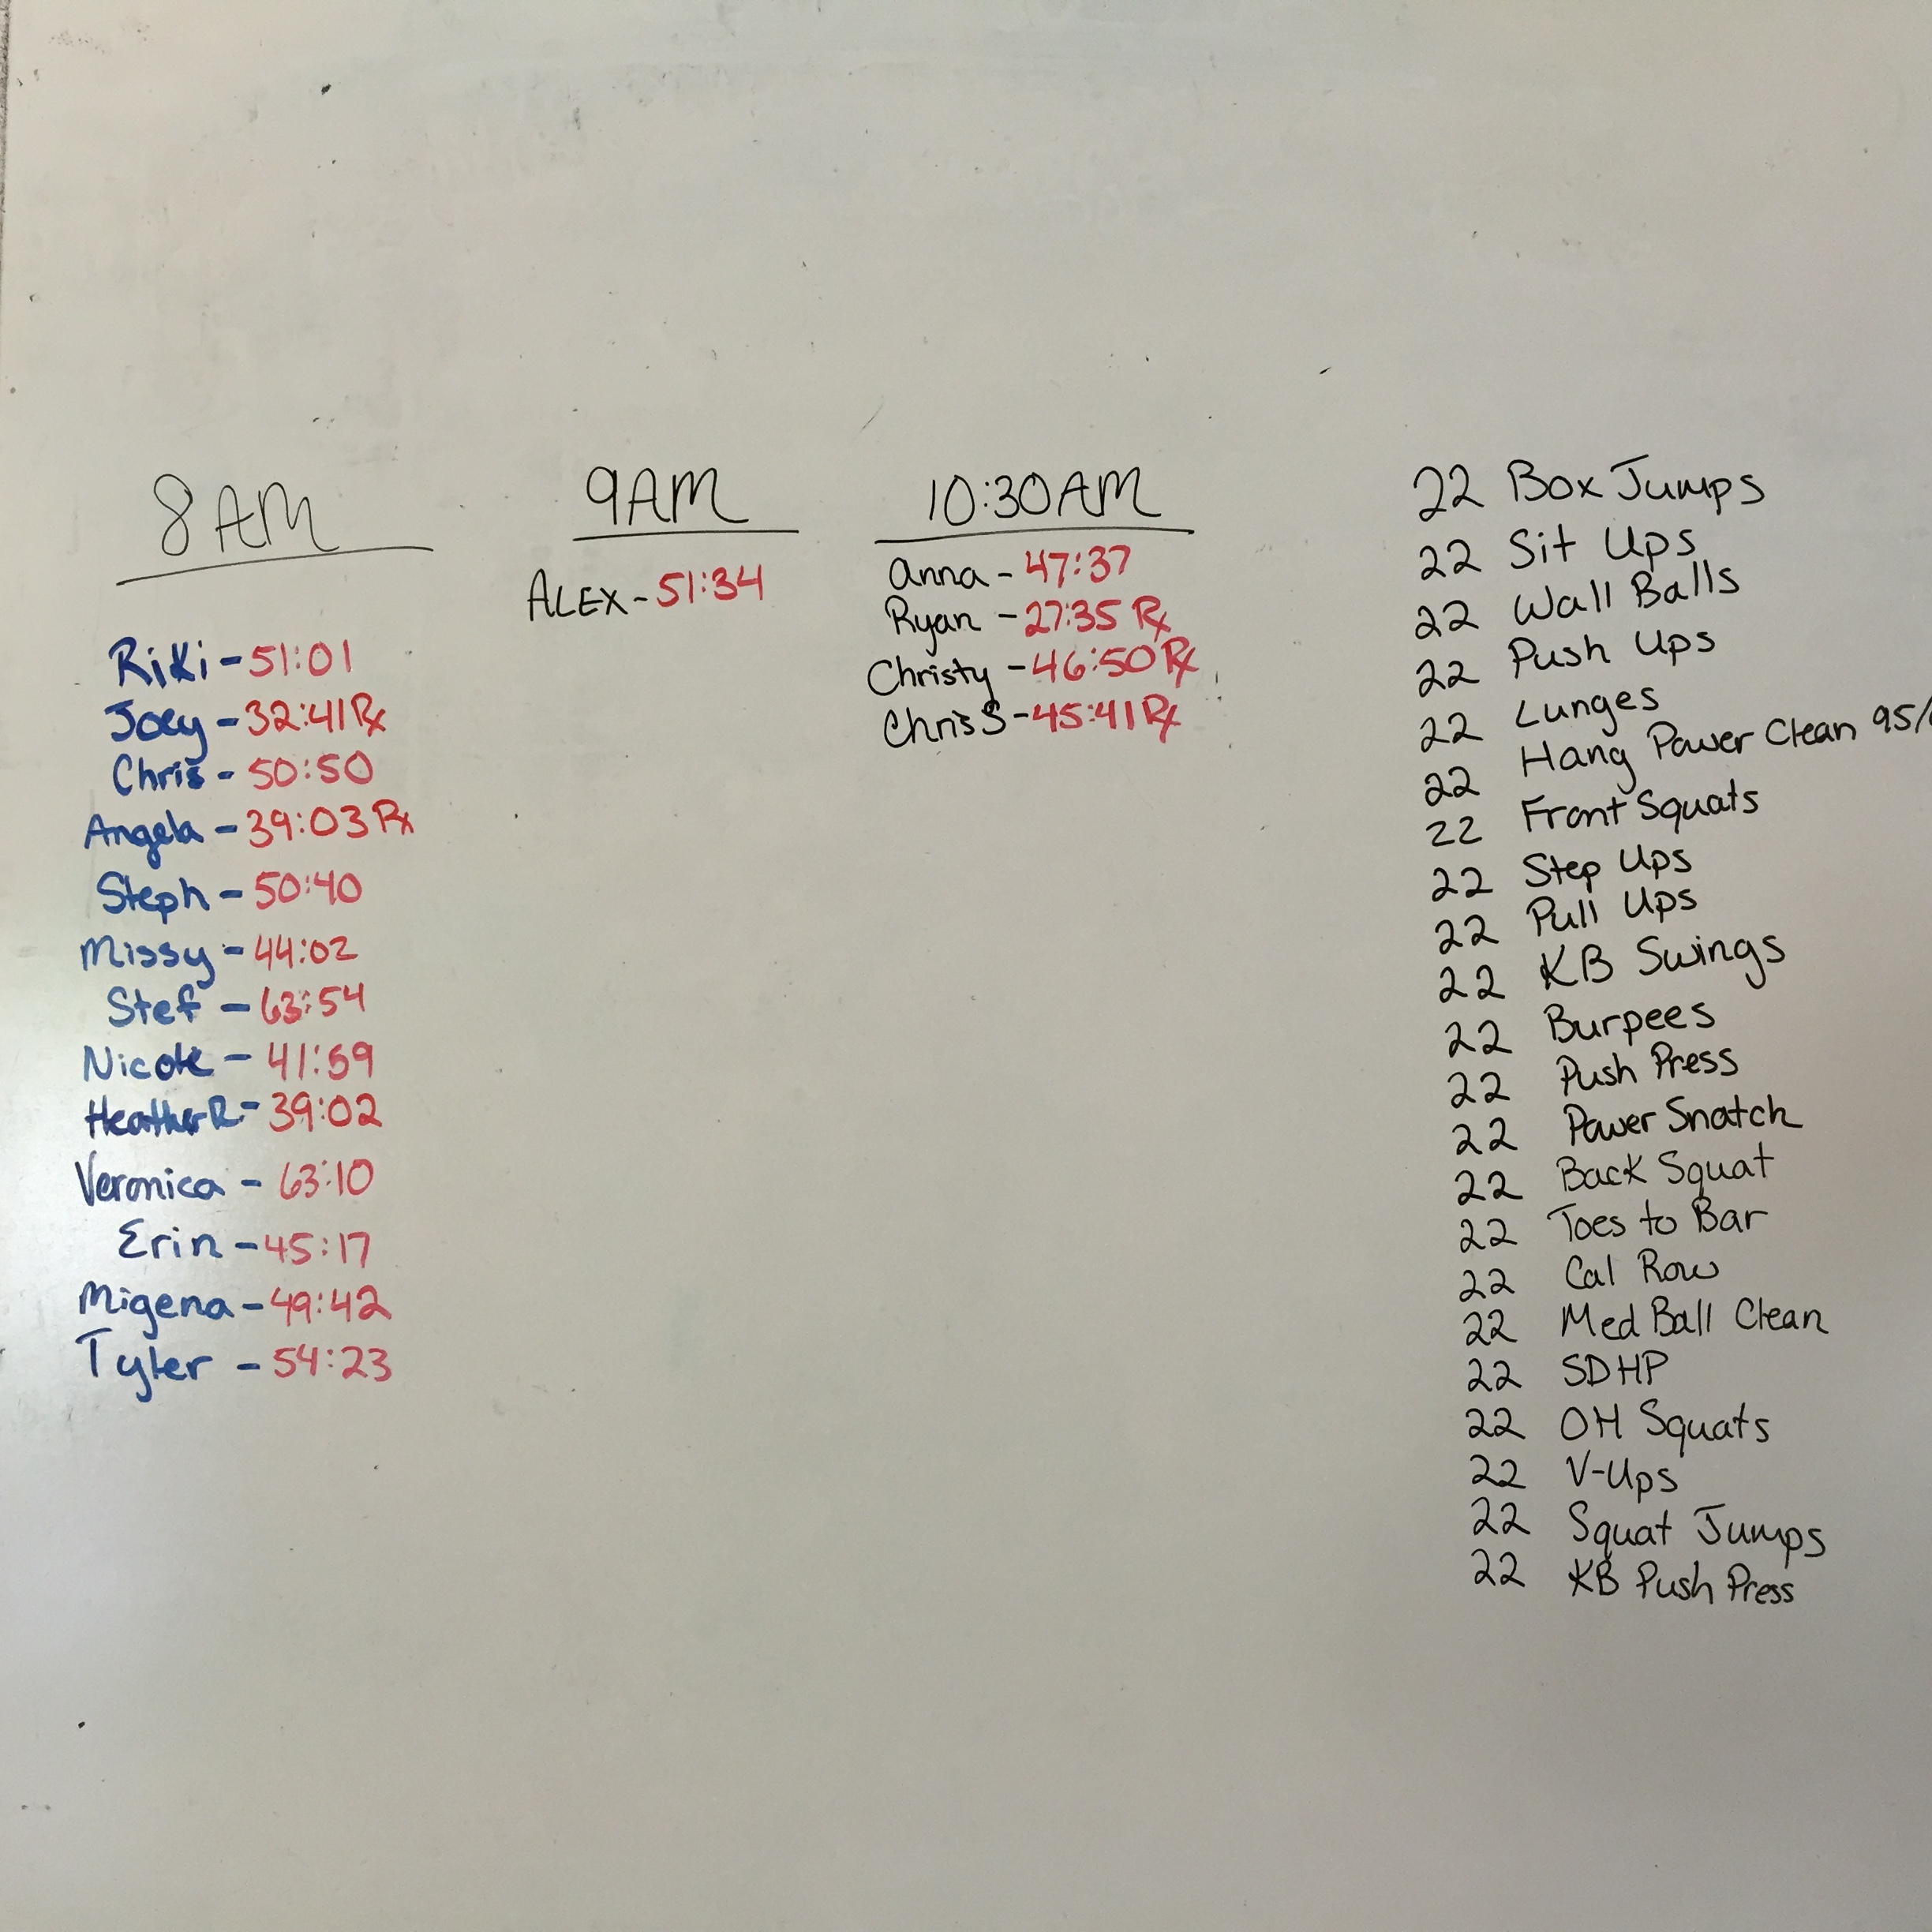 8AM
Riki - 51:01
Joey - 32:41 Rx
Chris - 50:50
Angela - 39:03 Rx
Steph - 50:40
Missy - 44:02
Stef - 63:54
Nicole - 41:59
Heather R - 39:02
Veronica - 63:10
Erin - 45:17
Migena - 49:42
Tyler - 54:23
9AM
ALEX - 51:34
10:30AM
Anna - 47:37
Ryan - 27:35 Rx
Christy - 46:50 Rx
Chris S - 45:41 Rx
22 Box Jumps
22 Sit Ups
22 Wall Balls
22 Push Ups
22 Lunges
22 Hang Power Clean 95/
22 Front Squats
22 Step Ups
22 Pull Ups
22 KB Swings
22 Burpees
22 Push Press
22 Power Snatch
22 Back Squat
22 Toes to Bar
22 Cal Row
22 Med Ball Clean
22 SDHP
22 OH Squats
22 V-Ups
22 Squat Jumps
22 KB Push Press